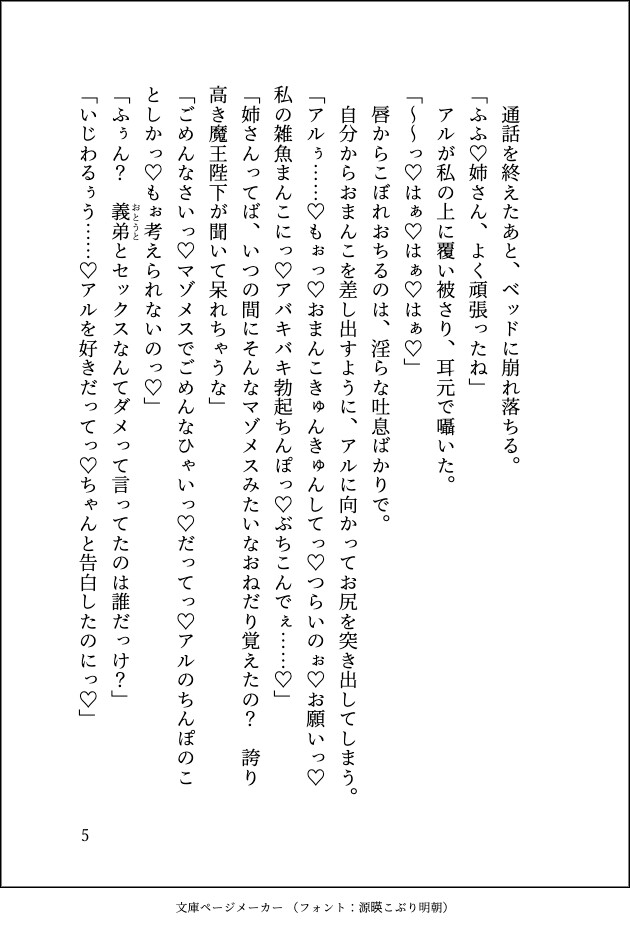 通話を終えたあと、ベッドに崩れ落ちる。
「ふふ♡姉さん、よく頑張ったね」
アルが私の上に覆い被さり、耳元で囁いた。
「～～っ♡はぁ♡はぁ♡はぁ♡」
唇からこぼれおちるのは、淫らな吐息ばかりで。
自分からおまんこを差し出すように、アルに向かってお尻を突き出してしまう。
「アルぅ……♡もぉっ♡おまんこきゅんきゅんしてっ♡つらいのぉ♡お願いっ♡
私の雑魚まんこにっ♡アバキバキ勃起ちんぽっ♡ぶちこんでぇ……♡」
「姉さんってば、いつの間にそんなマゾメスみたいなおねだり覚えたの？　誇り
高き魔王陛下が聞いて呆れちゃうな」
「ごめんなさいっ♡マゾメスでごめんなひゃいっ♡だってっ♡アルのちんぽのこ
としかっ♡もぉ考えられないのっ♡」
「ふぅん？　義弟とセックスなんてダメって言ってたのは誰だっけ？」
おとうと
「いじわるぅう……♡アルを好きだってっ♡ちゃんと告白したのにっ♡」
5
文庫ページメーカー（フォント：源暎こぶり明朝）